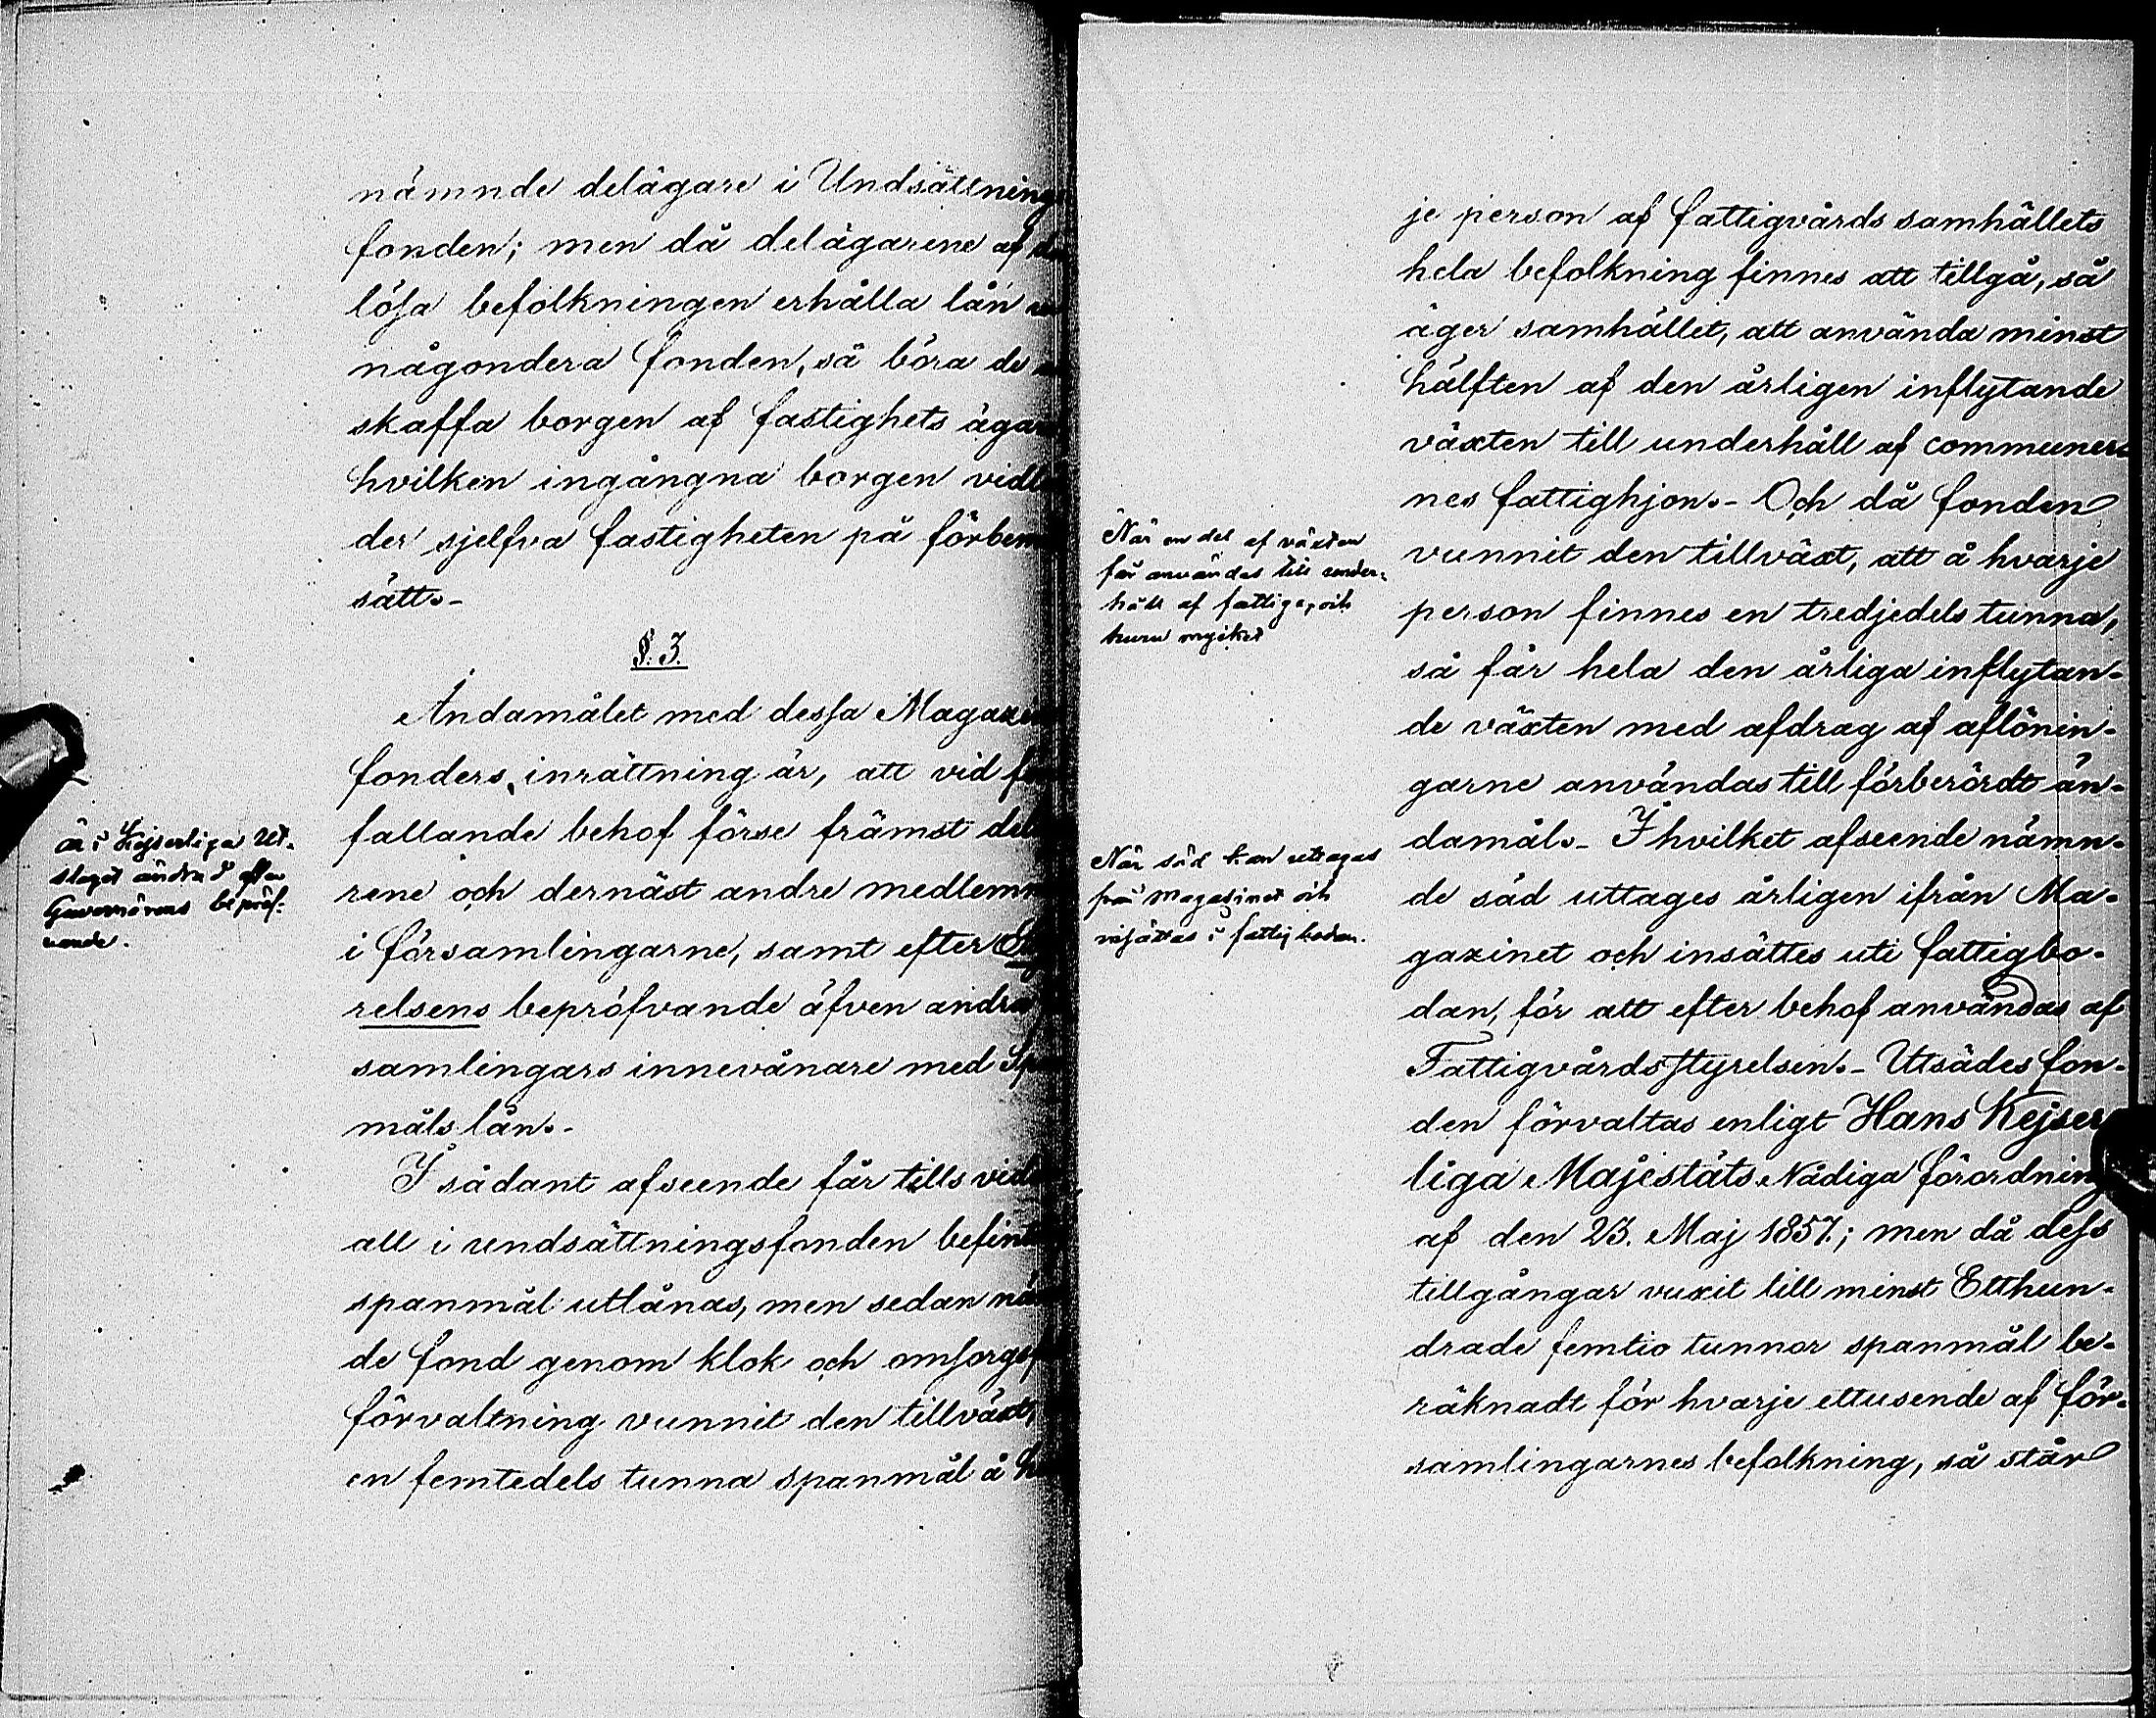 nämnde delägare i Undsättnings
fonden; men då delägarene af
lösa befolkningen erhålla lån
någondera fonden, så böra de
skaffa borgen af fastighets ägare
hvilken ingångna borgen vidlå
der sjelfva fastigheten på förbem
sätt.-
§. 3.
Ändamålet med dessa Magazins
fonders, inrättning är, att vid
fallande behof förse främst del
rene och dernäst andre medlemm
i församlingarne, samt efter
relsens bepröfvande äfven andra
samlingars innevånare med Span
måls lån.-
I sådant afseende får tills vida
all i undsättningsfonden befint
spanmål utlånas, men sedan näm
de fond genom klok och omsorgs
förvaltning vunnit den tillväxt,
en femtedels tunna spanmål å
är i Kejserliga Ut-
slaget ändradt efter
Guvernörens bepröf-
vande.
je person af fattigvårds samhällets
hela befolkning finnes att tillgå, så
äger samhället, att använda minst
hälften af den årligen inflytande
växten till underhåll af communer-
nes fattighjon.- Och då fonden
vunnit den tillväxt, att å hvarje
person finnes en tredjedels tunna,
så får hela den årliga inflytan-
de växten med afdrag af aflönin-
garne användas till förberördt än-
damål.- I hvilket afseende nämn-
de säd uttages årligen ifrån Ma-
gazinet och insättes uti fattigbo-
dan, för att efter behof användas af
Fattigvårdsstyrelsen.- Utsädes fon-
den förvaltas enligt Hans Kejser
liga Majestäts Nådiga förordning
af den 23. Maj 1857.; men då dess
tillgångar vuxit till minst Etthun-
drade femtio tunnor spanmål be-
räknadt för hvarje ettusende af för-
samlingarnes befolkning, så står
När en del af växten
får användas till under-
håll af fattiga, och
huru mycket
När säd kan uttagas
från magasinet och
insättas i fattigboden.